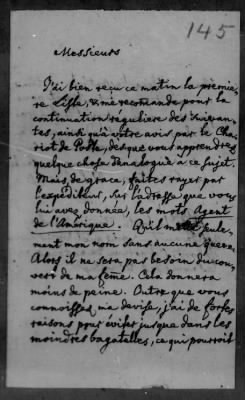 145
Messieurs
J'ai bien reçu ce matin la premie-
re Liste, & me recomande pour la
continuation réguliere des suivan-
tes, ainsi qu'à votre avis par le Cha-
riot de Poste, des que vous apprendrez
quelque chose d'analogue à ce sujet.
Mais, de grace, faites rayer par
l'expéditeur, sur l'adresse que vous
lui avez donnée, les mots Agent
de l'Amérique. Qu'il mette seule-
ment mon nom sans aucune queue.
Alors il ne sera pas besoin du cou-
vert de ma feme. Cela donnera
moins de peine. Outre que vous
connoissez ma devise, j'ai de fortes
raisons pour éviter jusque dans les
moindres bagatelles, ce qui pourroit